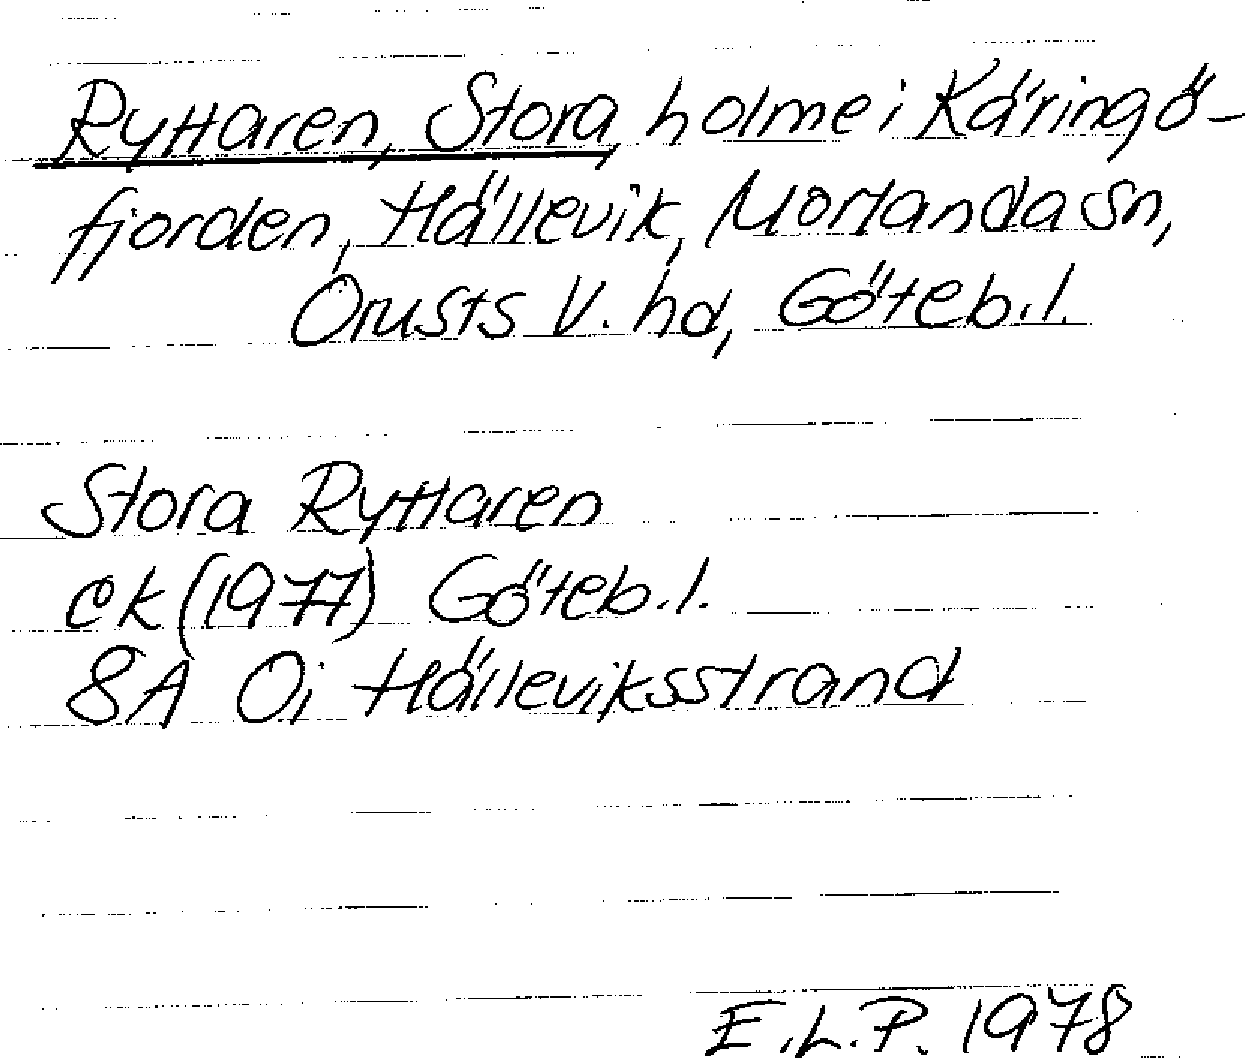 Ryttaren, Stora, holme i Käringö-
fjorden, Hällevik, Morlanda sn,
Orusts V. hd, Göteb. l.
Stora Ryttaren
ek (1977) Göteb. l.
8A 0i Hälleviksstrand
E.L.P. 1978